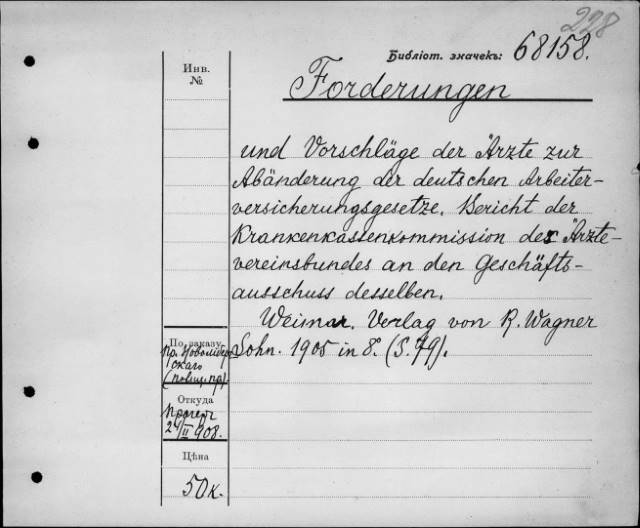 228
Библіот. значекъ: 68158.
Инв.
№
Forderungen
und Vorschläge der Ärzte zur
Abänderung der deutschen Arbeiter-
versicherungsgesetze. Bericht der
Krankenkassenkommission des Ärzte-
vereinsbundes an den Geschäfts-
ausschuss desselben.
Weimar. Verlag von R. Wagner
Sohn. 1905 in 8. (S. 79).
По заказу
Пр.
скаго
Откуда
2 /II 908.
Цѣна
50к.